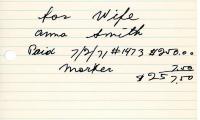 for Wife
Anna Smith
Paid 7/2/71 #1473 $250.00
Marker 7.50
$257.50